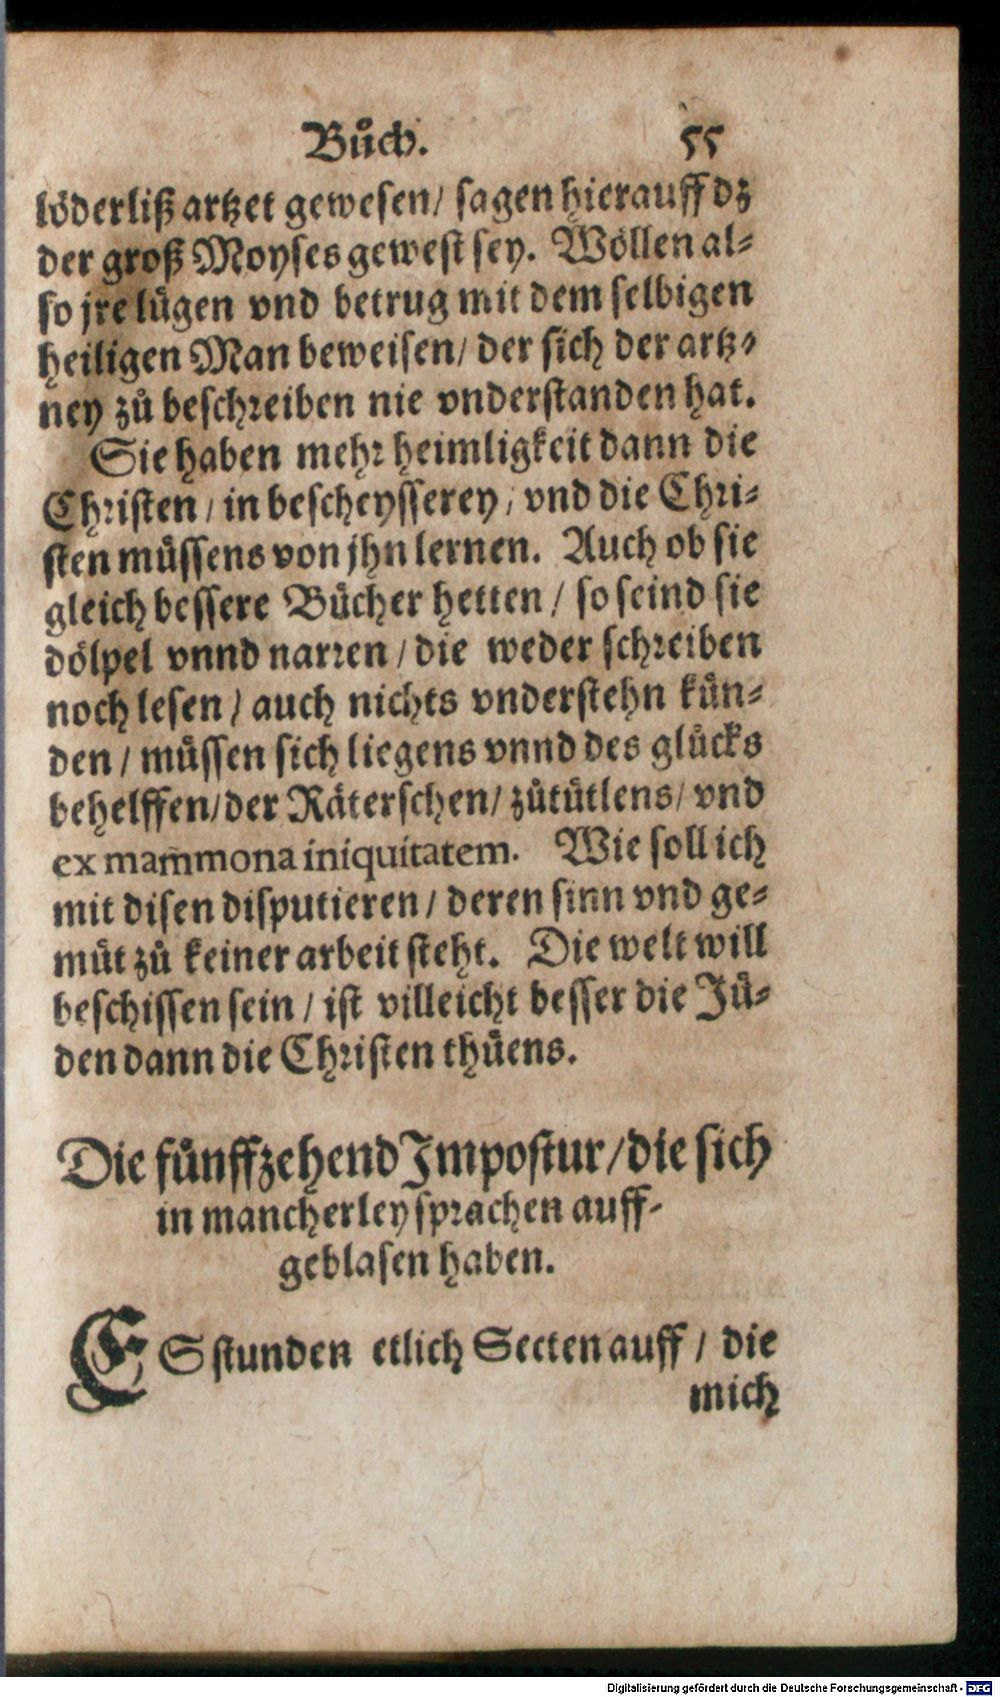 Bůch. 55
löderliß artzet gewesen/ sagen hierauff dz
der groß Moyses gewest sey. Wöllen al-
so jre lügen vnd betrug mit dem selbigen
heiligen Man beweisen/ der sich der artz-
ney zů beschreiben nie vnderstanden hat.
Sie haben mehr heimligkeit dann die
Christen/ in bescheysserey/ vnd die Chri-
sten müssens von jhn lernen. Auch ob sie
gleich bessere Bücher hetten/ so seind sie
dölpel vnnd narren/ die weder schreiben
noch lesen/ auch nichts vnderstehn kün-
den/ müssen sich liegens vnnd des glücks
behelffen/ der Räterschen/ zůtütlens/ vnd
ex mam̃mona iniquitatem. Wie soll ich
mit disen disputieren/ deren sinn vnd ge-
müt zů keiner arbeit steht. Die welt will
beschissen sein/ ist villeicht besser die Jü-
den dann die Christen thüens.
Die fünffzehend Impostur/ die sich
in mancherley sprachen auff-
geblasen haben.
ES stunden etlich Secten auff/ die
mich
Digitalisierung gefördert durch die Deutsche Forschungsgemeinschaft - DFG